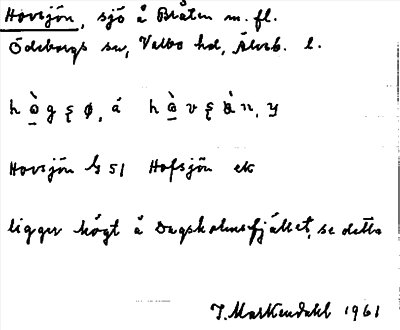 Hovsjön, sjö å Bråten m. fl.
Ödeborgs sn, Valbo hd, Älvsb. l.
Hovsjön G 51 Hofsjön ek
ligger högt å Dagsholmsfjället, se detta
J. Markendahl 1961